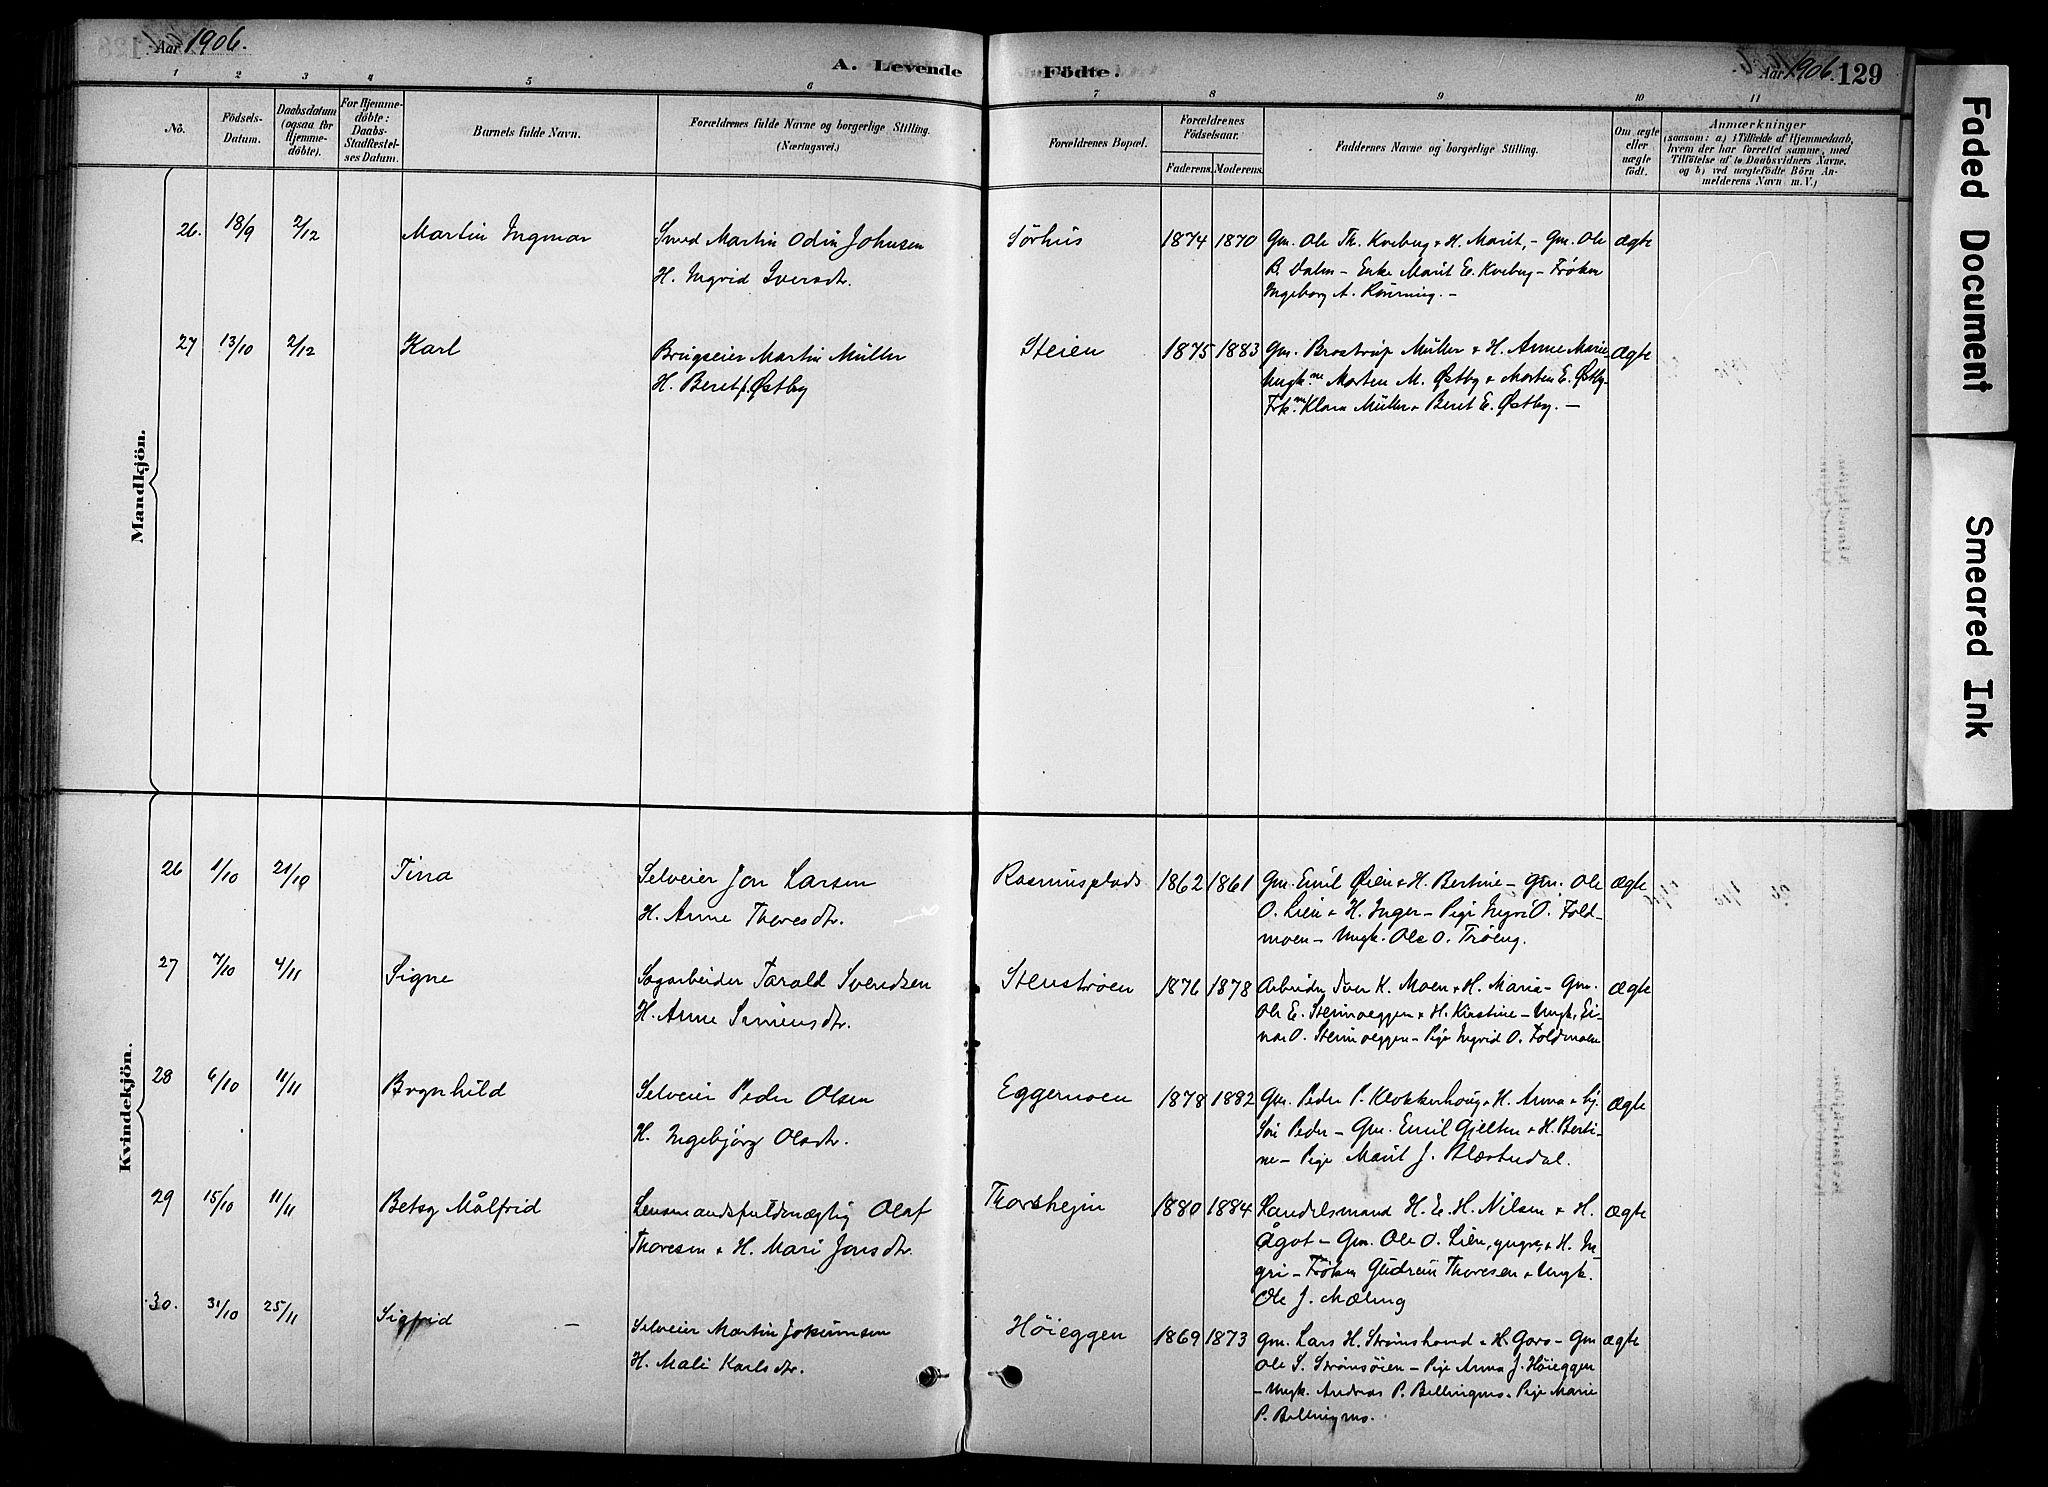 Aar 1906.
A. Levende Födte.
Aar 1906. 129
1 2 3 4 5 6 7 8 9 10 11
No.
Födsels-Datum.
Daabsdatum (ogsaa for Hjemme-döbte).
For Hjemme-döbte: Daabs-Stadfestel-ses Datum.
Barnets fulde Navn.
Forældrenes fulde Navne og borgerlige Stilling.
(Næringsvei.)
Forældrenes Bopæl.
Forældrenes Födselsaar.
Faderens. Moderens.
Faddernes Navne og borgerlige Stilling.
Om ægte eller uægte födt.
Anmærkninger
(saasom: a) i Tilfælde af Hjemmedaab,
hvem der har forrettet samme, med
Tilföielse af to Daabsvidners Navne.
og b) ved uægtefödte Börn An-
melderens Navn m. V.)
Mandkjön.
26. 18/9 2/12 Martin Ingmar Smed Martin Odin Johnsen Sörhus 1874 1870 Gm. Ole Th. Kveberg & H. Marit, - Gm. Ole ægte
H. Ingrid Iversdtr. B. Dalen - Enke Marit E. Kveberg - Frøken
Ingeborg A. Rönning. -
27 13/10 2/12 Karl Brugseier Martin Müller Steien 1875 1883 Gm. Brostrup Müller & H. Anne Marie ægte
H. Beret f. Østby Ungk.ne Morten M. Østby & Morten E. Østby-
Frk.ne Klara Müller & Beret E. Østby. -
Kvindekjön.
26 1/10 21/10 Tina Selveier Jon Larsen Rasmusplads 1862 1861 Gm. Emil Øien & H. Bertine - Gm. Ole ægte
H. Anne Thoresdtr. O. Lien & H. Inger - Pige Ingri O. Fold-
moen - Ungk. Ole O. Trøeng.
27 7/10 4/11 Signe Sagarbeider Tarald Svendsen Stenstrøen 1876 1878 Arbeider Iver K. Moen & H. Marie - Gm. ægte
H. Anne Simensdtr. Ole E. Steimoeggen & H. Kirstine - Ungk. Ei-
nar O. Steimoeggen - Pige Ingrid O. Foldmoen
28 6/10 11/11 Brynhild Selveier Peder Olsen Eggemoen 1878 1882 Gm. Peder P. Klokkerhoug & H. Anna & ægte
H. Ingebjörg Olsdtr. Søn Peder - Gm. Emil Gjelten & H. Berti-
ne - Pige Marit J. Blæsterdal.
29 15/10 11/11 Betsy Målfrid Lensmandsfuldmægtig Olaf Thorshejm 1880 1884 Handelsmand H. E. H. Nilsen & H. ægte
Thoresen & H. Mari Jonsdtr. Ågot - Gm. Ole O. Lien, yngre, & H. In-
gri - Frøken Gudrun Thoresen & Ungk.
Ole J. Mæling
30. 31/10 25/11 Sigfrid - Selveier Martin Jokumsen Höieggen 1869 1873 Gm. Lars H. Strömshoud & H. Goro - Gm ægte
H. Mali Karlsdtr. Ole S. Strömsöien - Pige Anna J. Höieggen
- Ungk. Andreas P. Bellingmo. Pige Marie
P. Bellingmo.
Faded Document
Smeared Ink